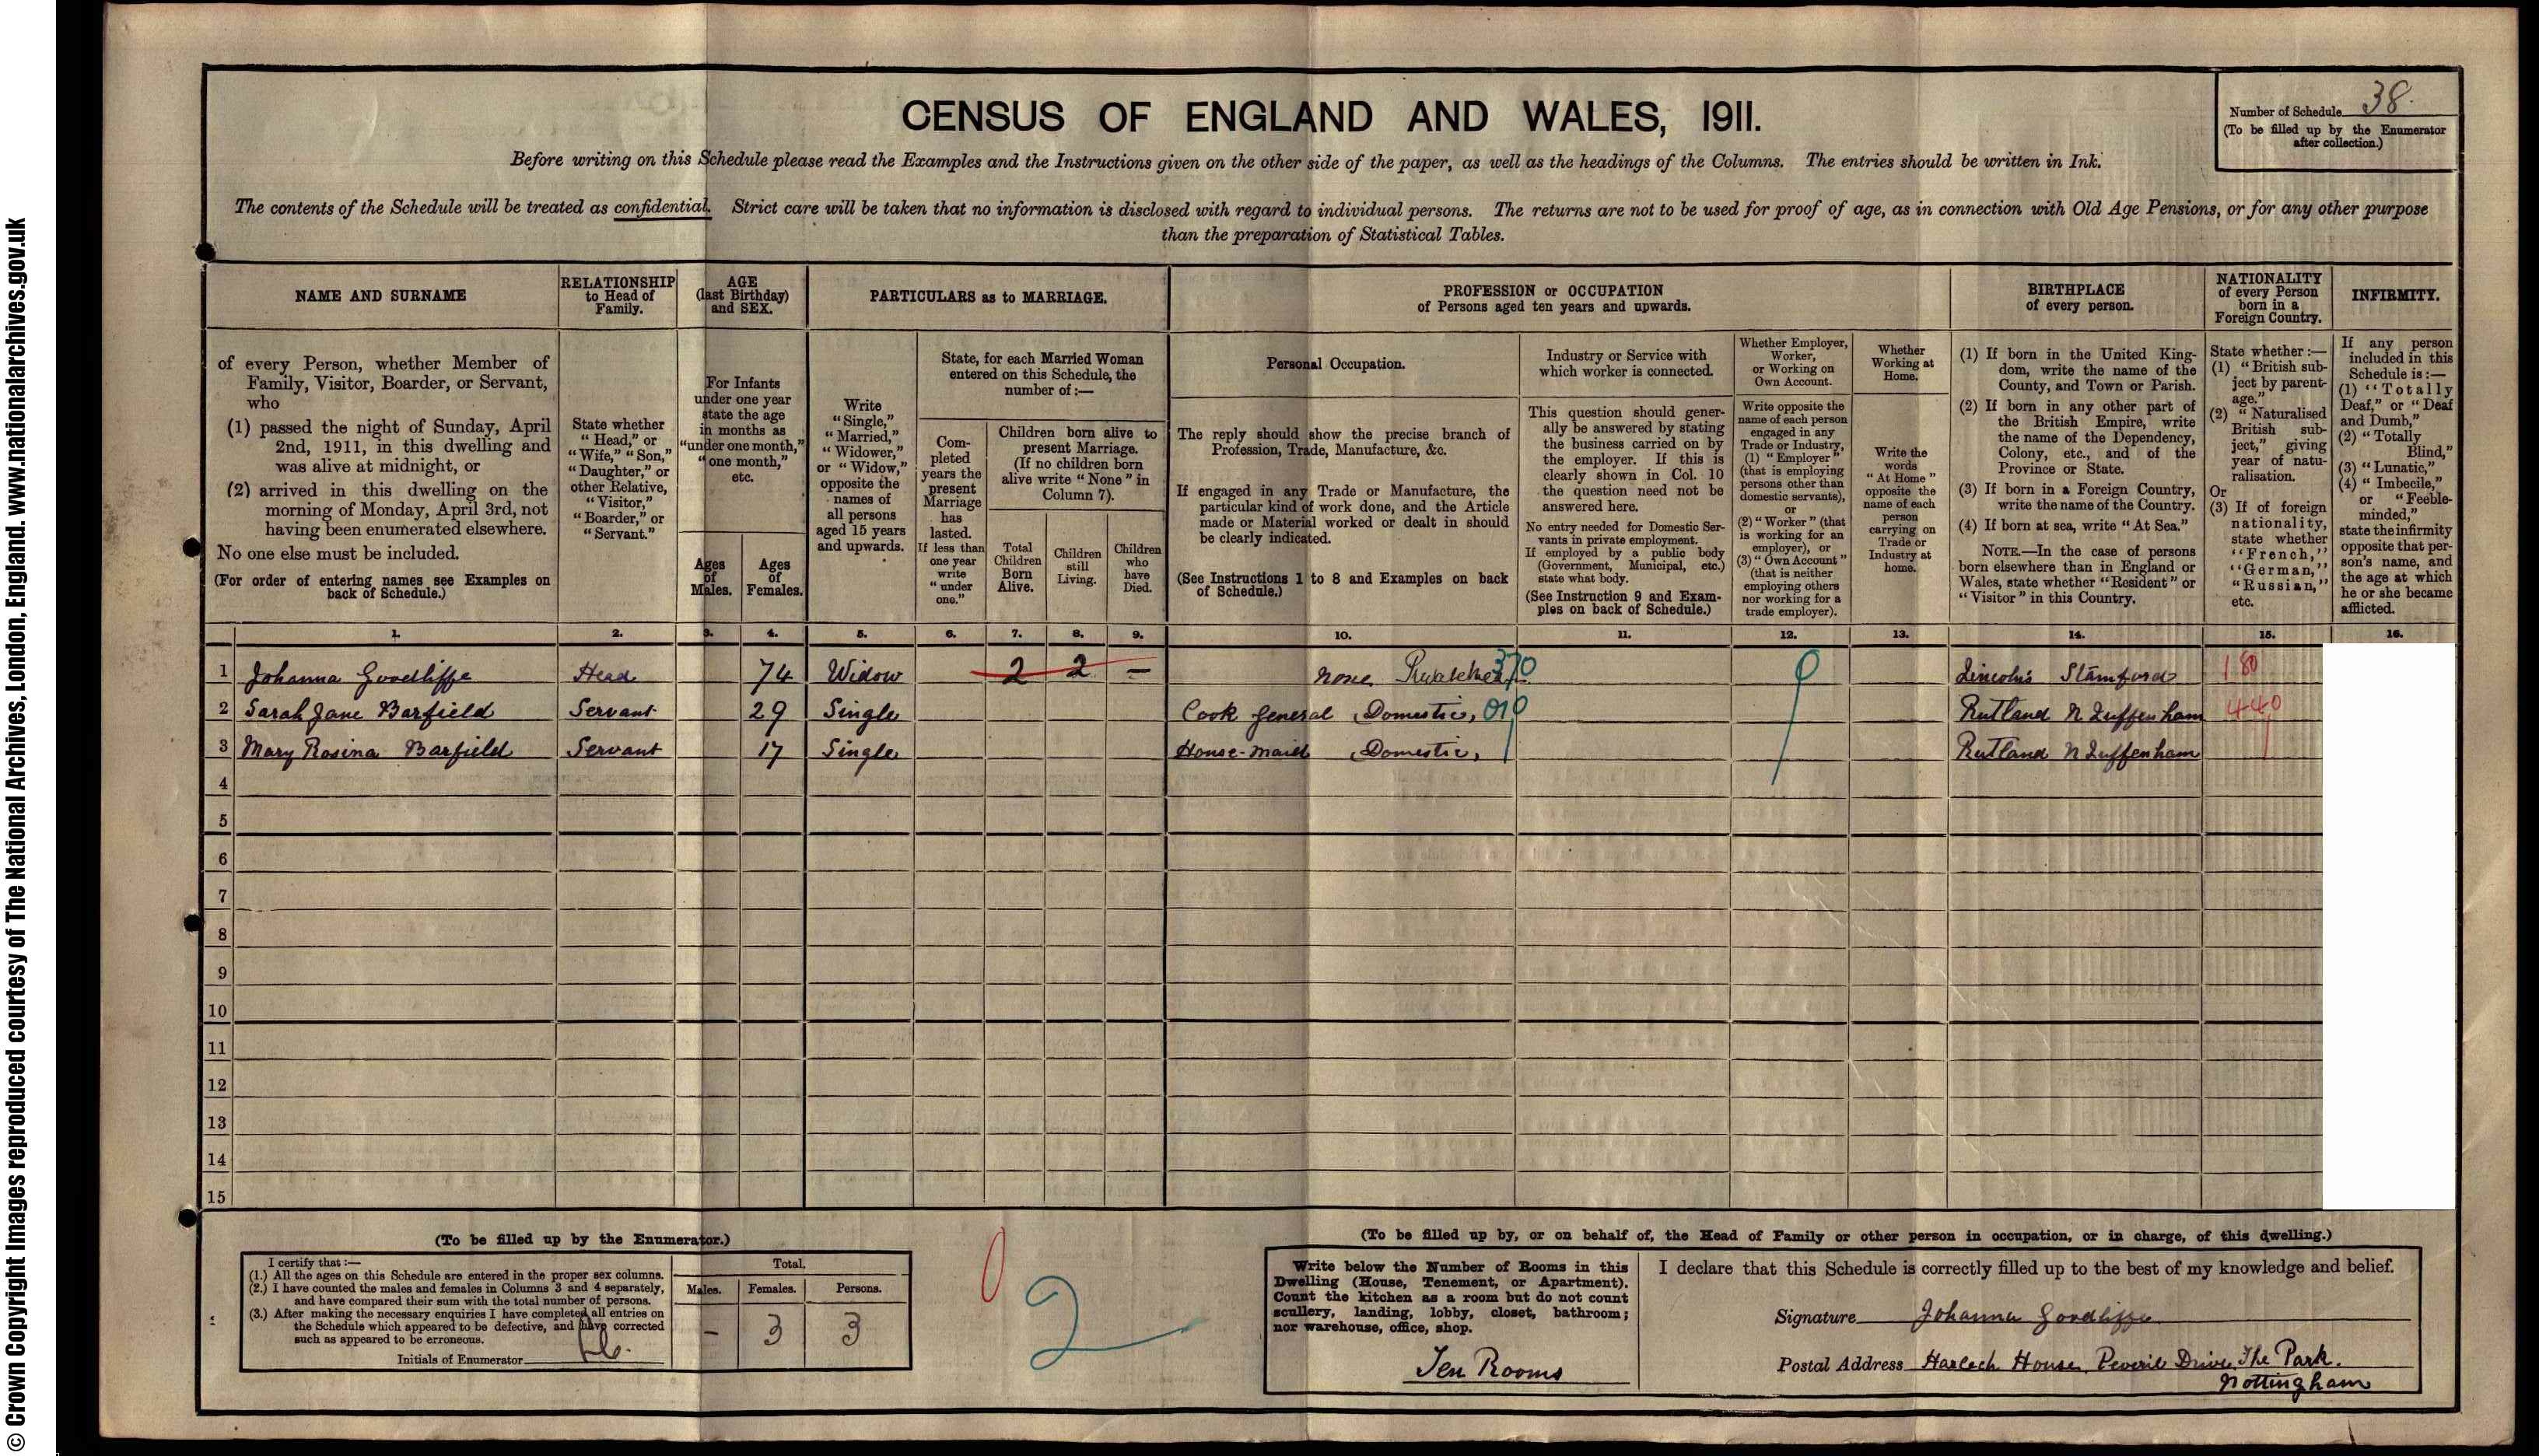 © Crown Copyright Images reproduced courtesy of The National Archives, London, England. www.nationalarchives.gov.uk
CENSUS OF ENGLAND AND WALES, 1911.
Number of Schedule 38.
(To be filled up by the Enumerator
after collection.)
Before writing on this Schedule please read the Examples and the Instructions given on the other side of the paper, as well as the headings of the Columns. The entries should be written in Ink.
The contents of the Schedule will be treated as confidential. Strict care will be taken that no information is disclosed with regard to individual persons. The returns are not to be used for proof of age, as in connection with Old Age Pensions, or for any other purpose
than the preparation of Statistical Tables.
NAME AND SURNAME
of every Person, whether Member of
Family, Visitor, Boarder, or Servant,
who
(1) passed the night of Sunday, April
2nd, 1911, in this dwelling and
was alive at midnight, or
(2) arrived in this dwelling on the
morning of Monday, April 3rd, not
having been enumerated elsewhere.
No one else must be included.
(For order of entering names see Examples on
back of Schedule.)
RELATIONSHIP
to Head of
Family.
State whether
"Head," or
"Wife," "Son,"
"Daughter," or
other Relative,
"Visitor,"
"Boarder," or
"Servant."
AGE
(last Birthday)
and SEX.
For Infants
under one year
state the age
in months as
"under one month,"
"one month,"
etc.
Ages
of
Males.
Ages
of
Females.
PARTICULARS as to MARRIAGE.
Write
"Single,"
"Married,"
"Widower,"
or "Widow,"
opposite the
names of
all persons
aged 15 years
and upwards.
State, for each Married Woman
entered on this Schedule, the
number of:—
Com-
pleted
years the
present
Marriage
has
lasted.
If less than
one year
write
"under
one."
Children born alive to
present Marriage.
(If no children born
alive write "None" in
Column 7).
Total
Children
Born
Alive.
Children
still
Living.
Children
who
have
Died.
PROFESSION or OCCUPATION
of Persons aged ten years and upwards.
Personal Occupation.
The reply should show the precise branch of
Profession, Trade, Manufacture, &c.
If engaged in any Trade or Manufacture, the
particular kind of work done, and the Article
made or Material worked or dealt in should
be clearly indicated.
(See Instructions 1 to 8 and Examples on back
of Schedule.)
Industry or Service with
which worker is connected.
This question should gener-
ally be answered by stating
the business carried on by
the employer. If this is
clearly shown in Col. 10
the question need not be
answered here.
No entry needed for Domestic Ser-
vants in private employment.
If employed by a public body
(Government, Municipal, etc.)
state what body.
(See Instruction 9 and Exam-
ples on back of Schedule.)
Whether Employer,
Worker,
or Working on
Own Account.
Write opposite the
name of each person
engaged in any
Trade or Industry,
(1) "Employer"
(that is employing
persons other than
domestic servants),
or
(2) "Worker" (that
is working for an
employer), or
(3) "Own Account"
(that is neither
employing others
nor working for a
trade employer).
Whether
Working at
Home.
Write the
words
"At Home"
opposite the
name of each
person
carrying on
Trade or
Industry at
home.
BIRTHPLACE
of every person.
(1) If born in the United King-
dom, write the name of the
County, and Town or Parish.
(2) If born in any other part of
the British Empire, write
the name of the Dependency,
Colony, etc., and of the
Province or State.
(3) If born in a Foreign Country,
write the name of the Country.
(4) If born at sea, write "At Sea."
NOTE.—In the case of persons
born elsewhere than in England or
Wales, state whether "Resident" or
"Visitor" in this Country.
NATIONALITY
of every Person
born in a
Foreign Country.
State whether:—
(1) "British sub-
ject by parent-
age."
(2) "Naturalised
British sub-
ject," giving
year of natu-
ralisation.
Or
(3) If of foreign
nationality,
state whether
"French,"
"German,"
"Russian,"
etc.
INFIRMITY.
If any person
included in this
Schedule is:—
(1) "Totally
Deaf," or "Deaf
and Dumb,"
(2) "Totally
Blind,"
(3) "Lunatic,"
(4) "Imbecile,"
or "Feeble-
minded,"
state the infirmity
opposite that per-
son's name, and
the age at which
he or she became
afflicted.
1. 2. 3. 4. 5. 6. 7. 8. 9. 10. 11. 12. 13. 14. 15. 16.
1 Johanna Goodliffe Head 74 Widow 2 2 — None 370 Lincolns Stamford 180
2 Sarah Jane Barfield Servant 29 Single Cook General Domestic, 010 Rutland N Luffenham 440
3 Mary Rosina Barfield Servant 17 Single House-maid Domestic, Rutland N Luffenham
4
5
6
7
8
9
10
11
12
13
14
15
(To be filled up by the Enumerator.)
I certify that:—
(1.) All the ages on this Schedule are entered in the proper sex columns.
(2.) I have counted the males and females in Columns 3 and 4 separately,
and have compared their sum with the total number of persons.
(3.) After making the necessary enquiries I have completed all entries on
the Schedule which appeared to be defective, and have corrected
such as appeared to be erroneous.
Initials of Enumerator
Total.
Males. Females. Persons.
– 3 3
0
2
(To be filled up by, or on behalf of, the Head of Family or other person in occupation, or in charge, of this dwelling.)
Write below the Number of Rooms in this
Dwelling (House, Tenement, or Apartment).
Count the kitchen as a room but do not count
scullery, landing, lobby, closet, bathroom;
nor warehouse, office, shop.
Ten Rooms
I declare that this Schedule is correctly filled up to the best of my knowledge and belief.
Signature Johanna Goodliffe
Postal Address Harlech House Peveril Drive The Park.
Nottingham